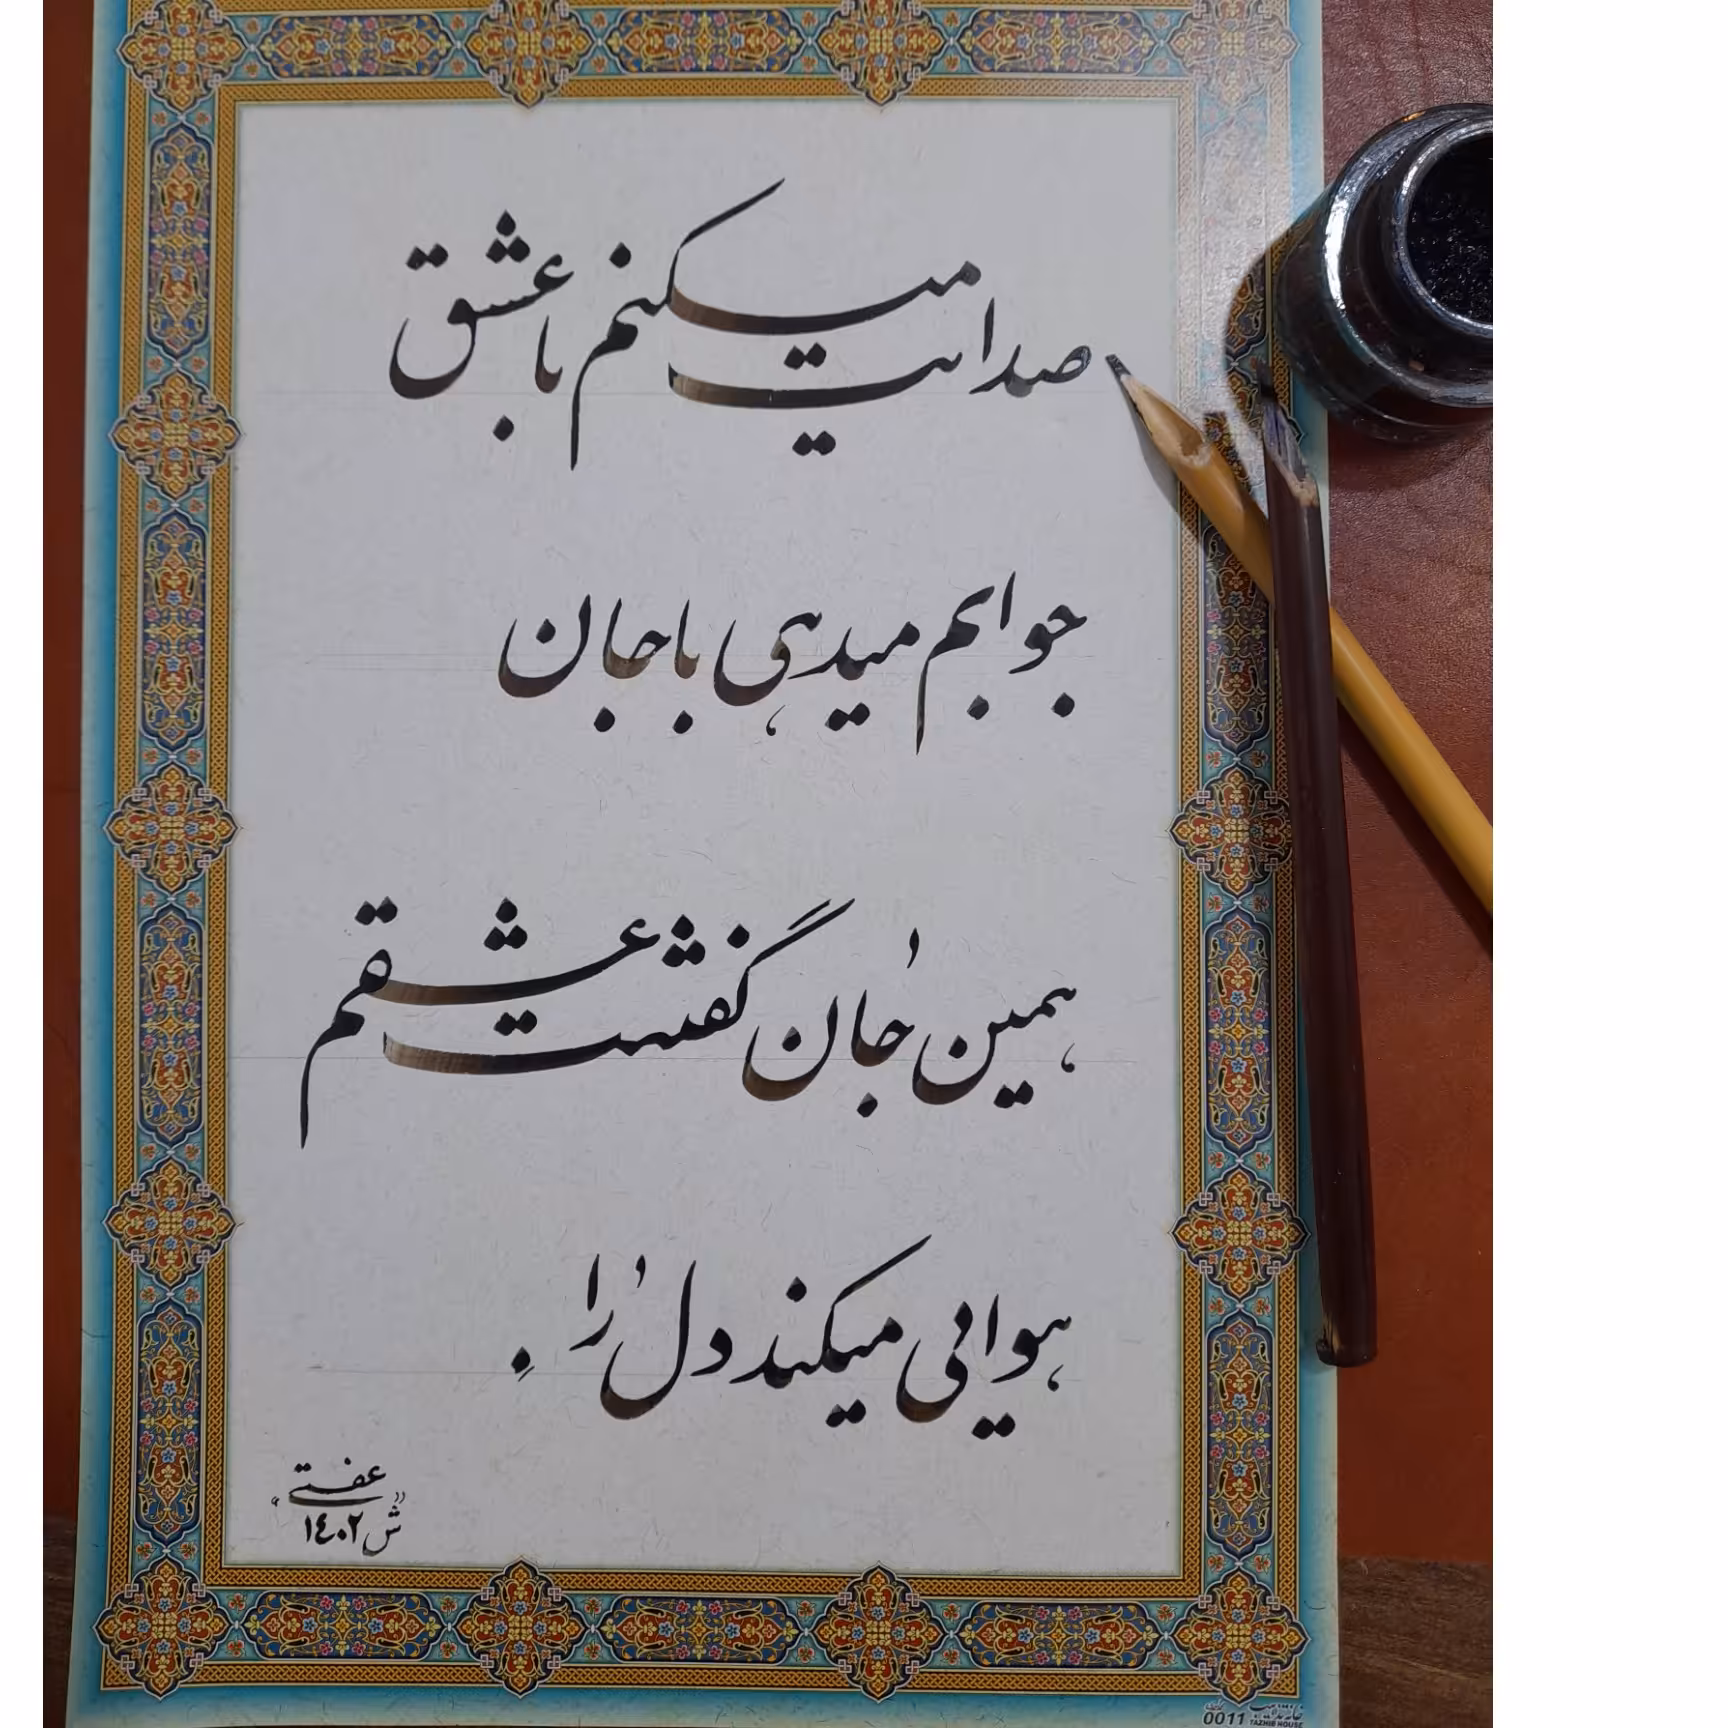 صدایت میکنم با عشق
جوابم میدهی با جان
همین جان گفتنت عشقم
هوایی میکند دل را
عفتی
ش ۱۴۰۲
خانه تذهیب
0011 TAZHIB HOUSE